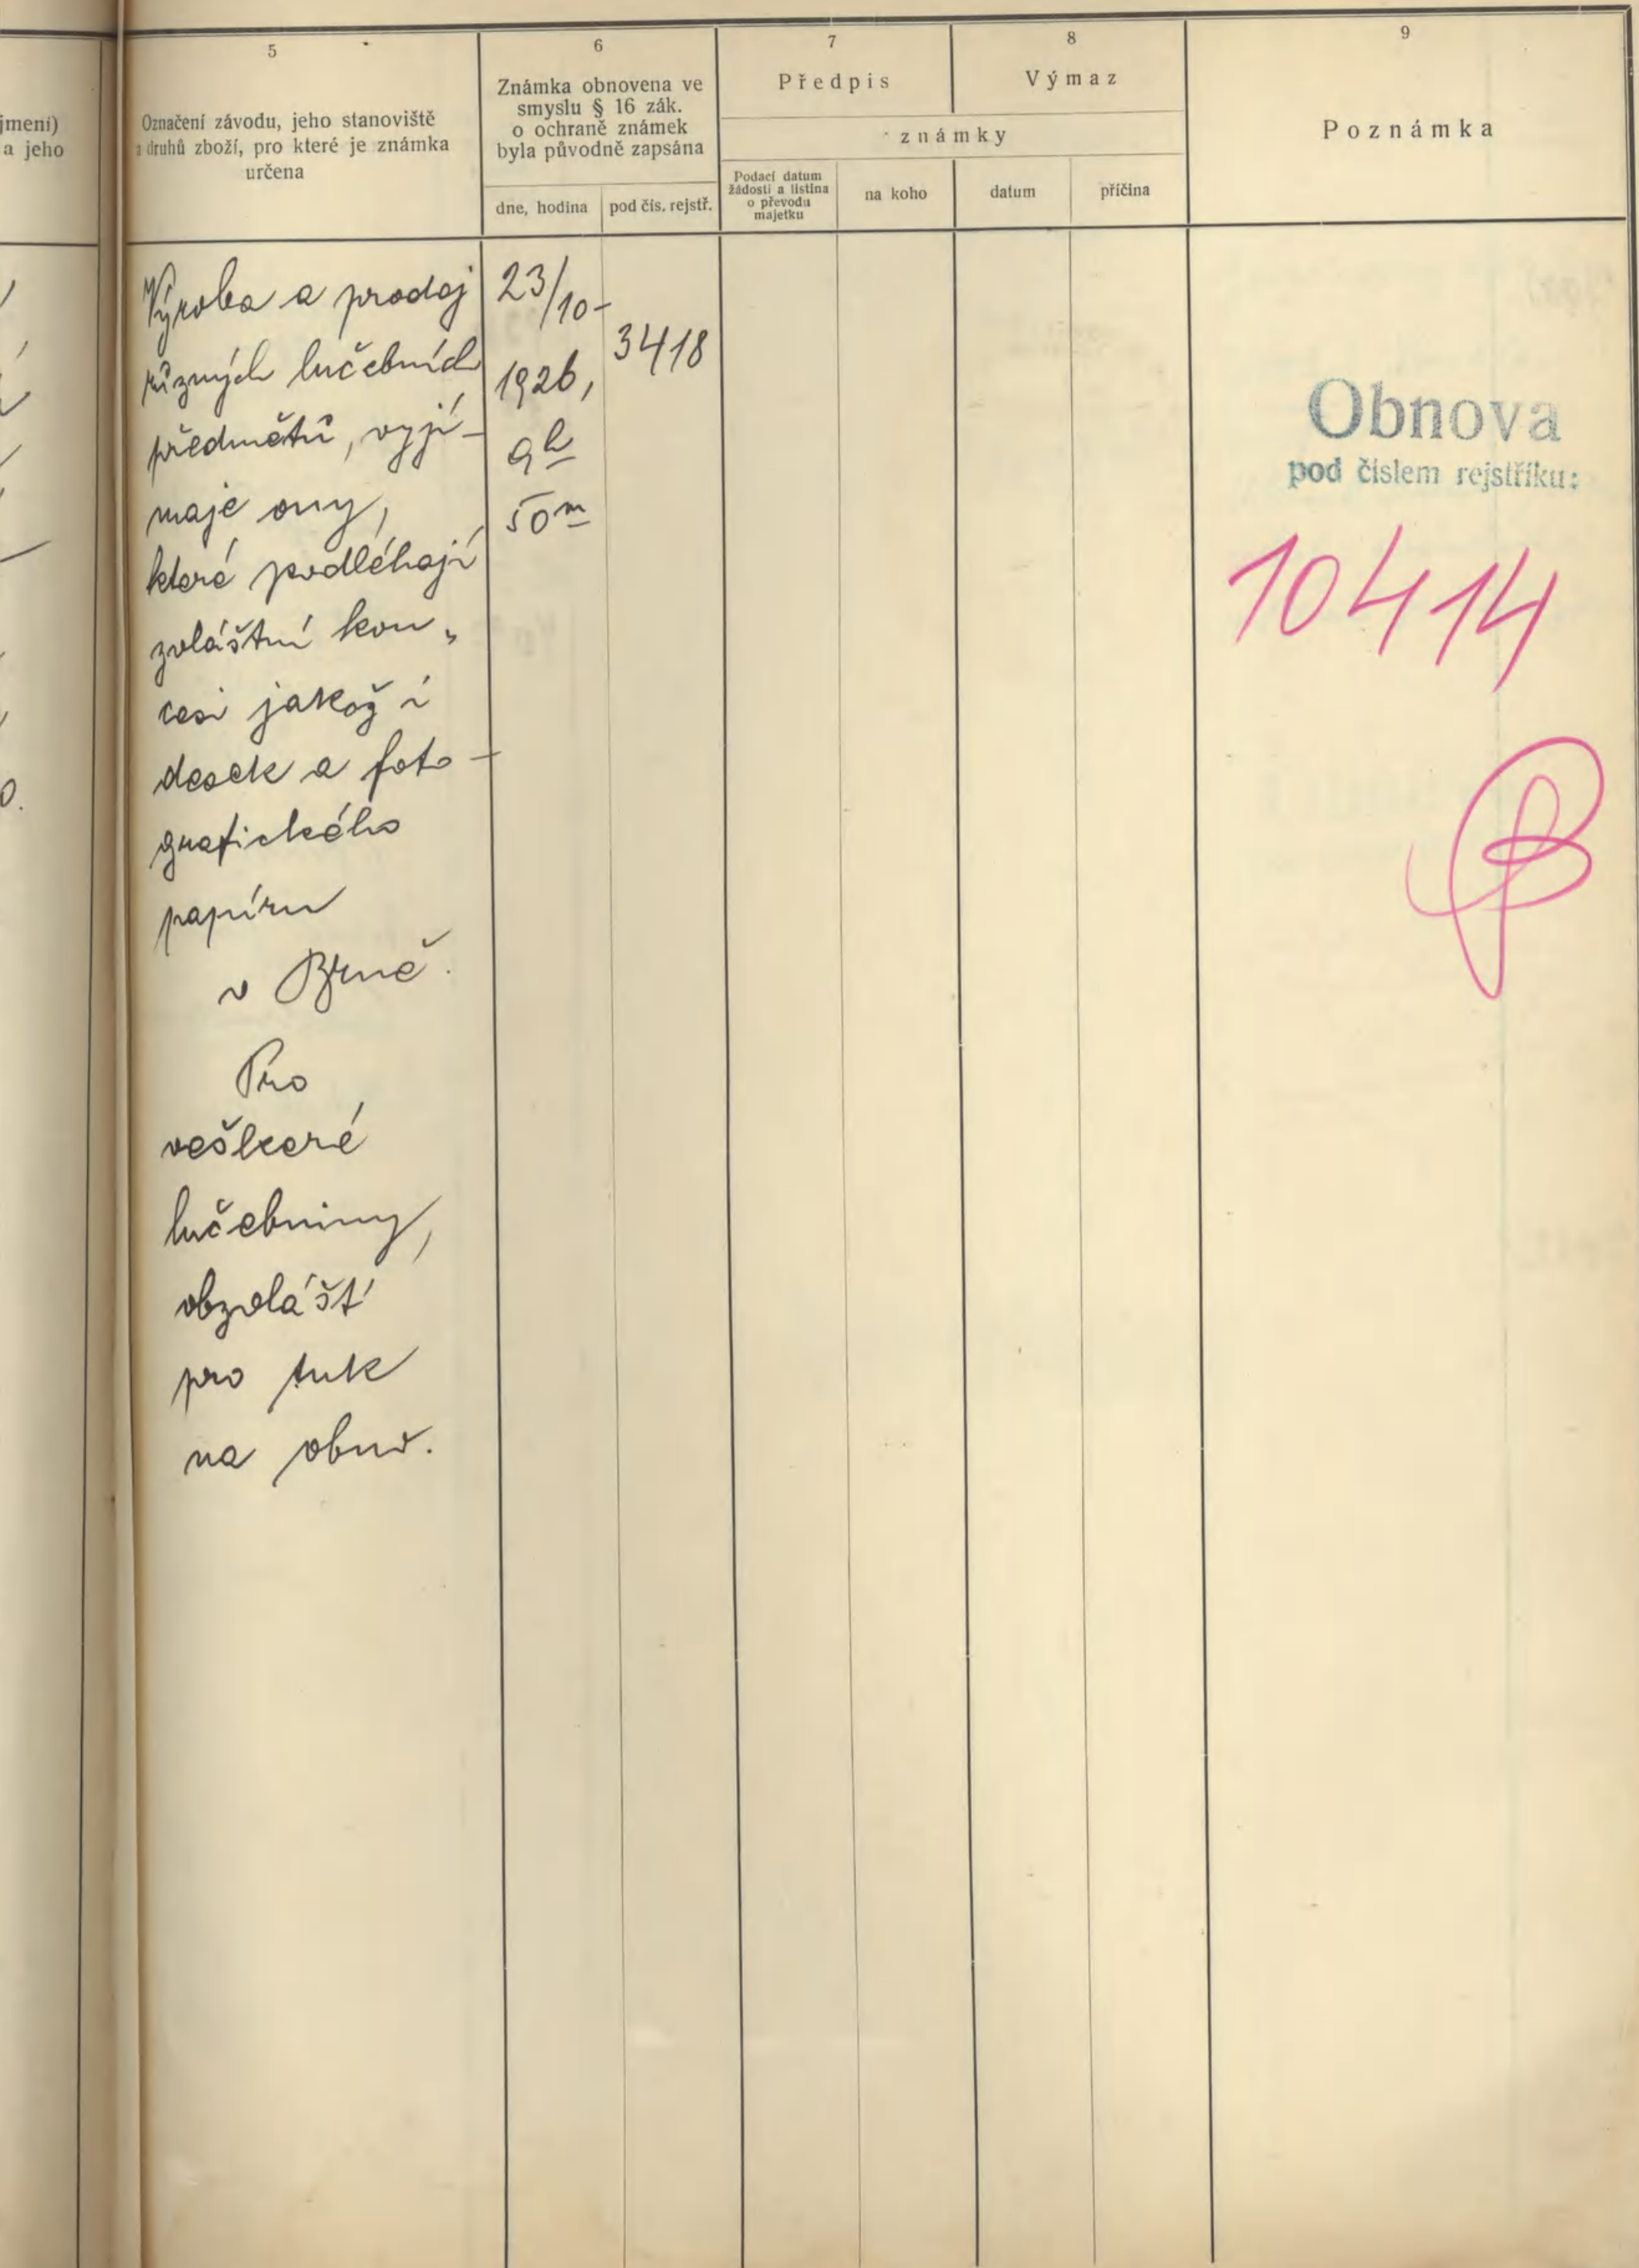 jmení)
a jeho
5
Označení závodu, jeho stanoviště
a druhů zboží, pro které je známka
určena
6
Známka obnovena ve
smyslu § 16 zák.
o ochraně známek
byla původně zapsána
dne, hodina
pod čís. rejstř.
7
Předpis
8
Výmaz
známky
Podací datum
žádosti a listina
o převodu
majetku
na koho
datum
příčina
9
Poznámka
Výroba a prodej
různých lučebních
předmětů, vyjí-
maje ony,
které podléhají
zvláštní kon„
cesi jakož i
desek a foto-
grafického
papíru
v Brně.
Pro
veškeré
lučebniny,
obzvlášť
pro tuk
na obuv.
23/10-
1926,
9h
50m
3418
Obnova
pod číslem rejstříku:
10414